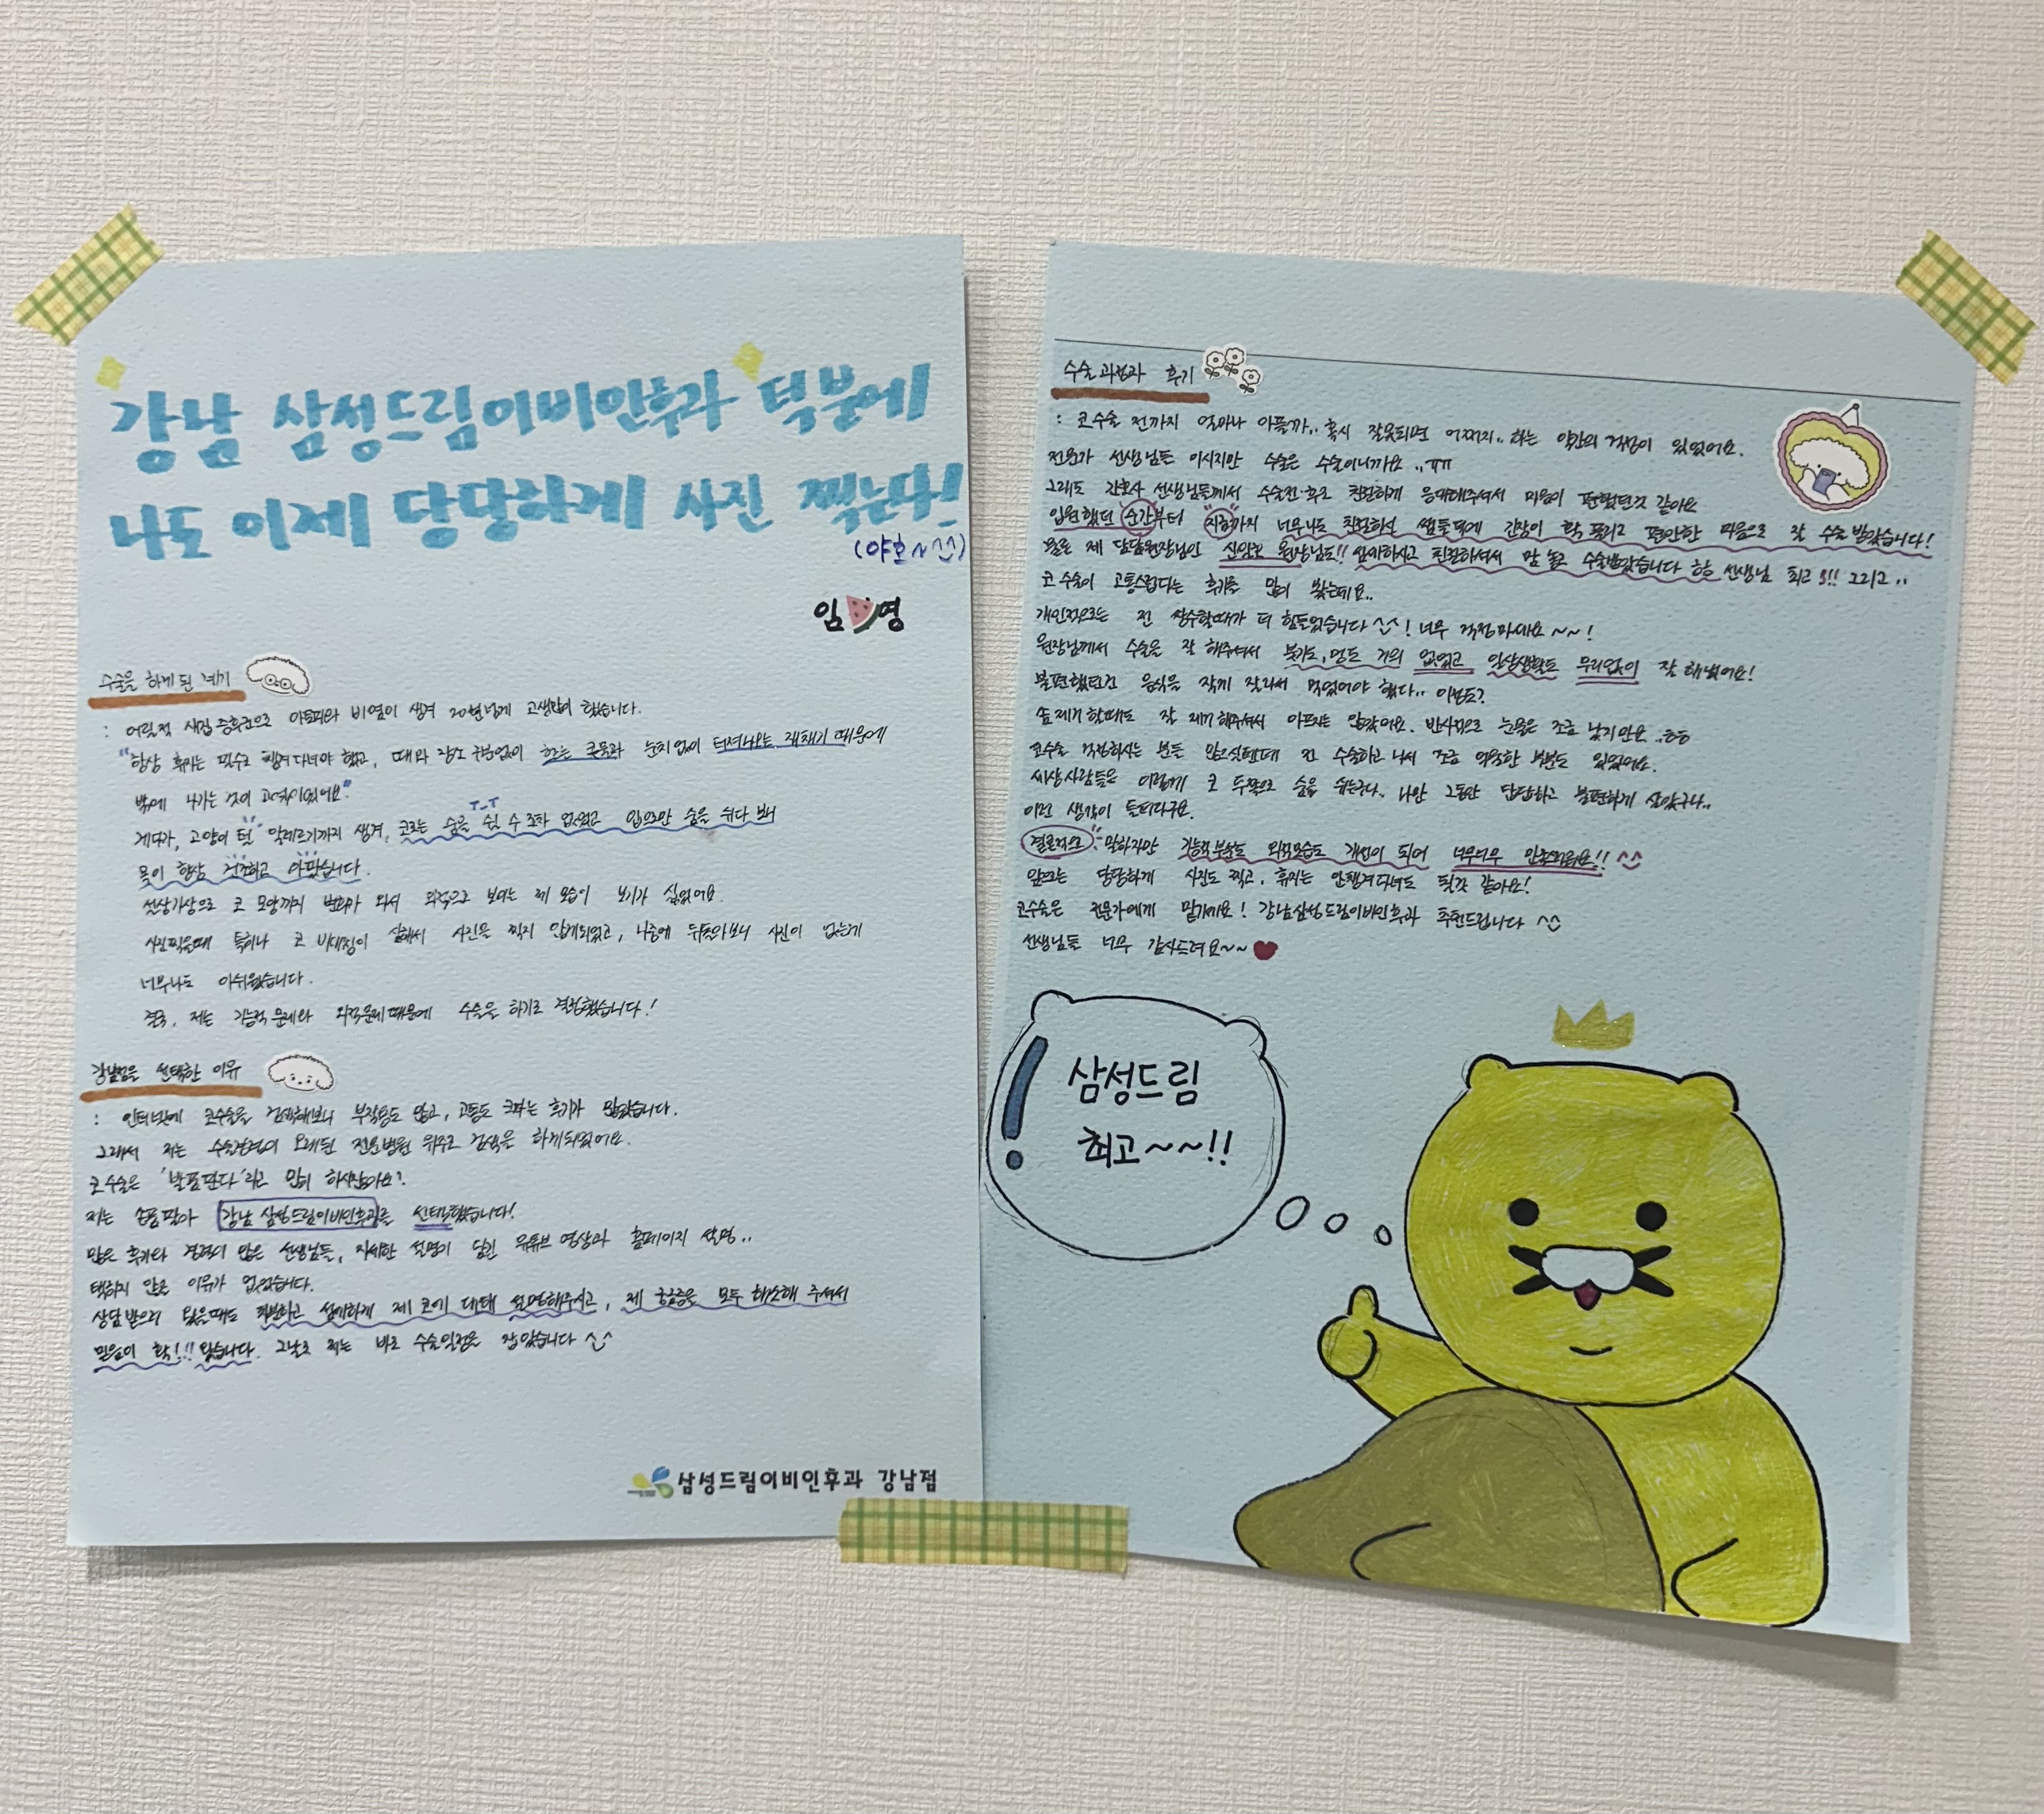 강남 삼성드림이비인후과 덕분에
나도 이제 당당하게 사진 찍는다!
(야호~^^)
임 영
수술을 하게 된 계기
: 어릴적 새집증후군으로 아토피와 비염이 생겨 20년넘게 고생많이 했습니다.
"항상 휴지는 필수로 챙겨다녀야 했고, 때와 장소 구분없이 흐르는 콧물과 눈치없이 터져나오는 재채기 때문에
밖에 나가는 것이 고역이었어요"
게다가, 고양이 털 알레르기까지 생겨, 코로는 숨을 쉴 수 조차 없었고 입으로만 숨을 쉬다 보니
T_T
목이 항상 건조하고 아팠습니다.
설상가상으로 코 모양까지 변화가 와서 외적으로 보이는 제 모습이 보기가 싫었어요.
사진찍을때 특히나 코 비대칭이 심해서 사진을 찍지 않게되었고, 나중에 뒤돌아보니 사진이 없는게
너무나도 아쉬웠습니다.
결국, 저는 기능적 문제와 외적문제 때문에 수술을 하기로 결정했습니다!
강남점을 선택한 이유
: 인터넷에 코수술을 검색해보니 부작용도 많고, 고통도 크다는 후기가 많았습니다.
그래서 저는 수술관련의 오래된 전문병원 위주로 검색을 하게되었어요.
코수술은 '발품판다'라고 많이 하시잖아요?
저는 손품팔아 강남 삼성드림이비인후과를 선택했습니다!
많은 후기와 경력이 많은 선생님들, 자세한 설명이 담긴 유튜브 영상과 홈페이지 설명..
택하지 않을 이유가 없었습니다.
상담 받으러 왔을때도 차분하고 섬세하게 제 코에 대해 설명해주시고, 제 궁금증을 모두 해소해 주셔서
믿음이 확!!! 왔습니다. 그날로 저는 바로 수술일정을 잡았습니다 ^^
삼성드림이비인후과 강남점
수술과정과 후기
: 코수술 전까지 얼마나 아플까.. 혹시 잘못되면 어쩌지.. 하는 약간의 걱정이 있었어요.
전문가 선생님들 이시지만 수술은 수술이니까요..ㅠㅠ
그래도 간호사 선생님들께서 수술전·후로 친절하게 응대해주셔서 마음이 편했던것 같아요
입원했던 순간부터 "지혈"까지 너무나도 친절하신 쌤들덕에 긴장이 확 풀리고 편안한 마음으로 잘 수술 받았습니다!
물론 제 담당원장님인 원장님도!! 섬세하시고 친절하셔서 맘 놓고 수술받았습니다 선생님 최고!!! 그리고..
코 수술이 고통스럽다는 후기를 많이 봤는데요..
개인적으로는 전 쌍수할때가 더 힘들었습니다^^! 너무 걱정마세요~~!
원장님께서 수술을 잘 해주셔서 붓기도, 멍도 거의 없었고 일상생활도 무리없이 잘 해냈어요!
불편했던건 음식을 작게 잘라서 먹었어야 했다.. 이정도?
솜제거 할때도 잘 제거해주셔서 아프지는 않았어요. 반사적으로 눈물은 조금 났지만요..ㅎㅎ
코수술 걱정하시는 분들 많으실텐데 전 수술하고 나서 조금 억울한 부분도 있었어요.
세상사람들은 이렇게 코 두쪽으로 숨을 쉬는구나. 나만 그동안 답답하고 불편하게 살았구나..
이런 생각이 들더라구요.
결론적으로 말하자면 기능적부분도 외적모습도 개선이 되어 너무너무 만족해요!! ^^
앞으로는 당당하게 사진도 찍고, 휴지는 안챙겨다녀도 될것 같아요!
코수술은 전문가에게 맡기세요! 강남삼성드림이비인후과 추천드립니다 ^^
선생님들 너무 감사드려요~~♥
삼성드림
최고~~!!